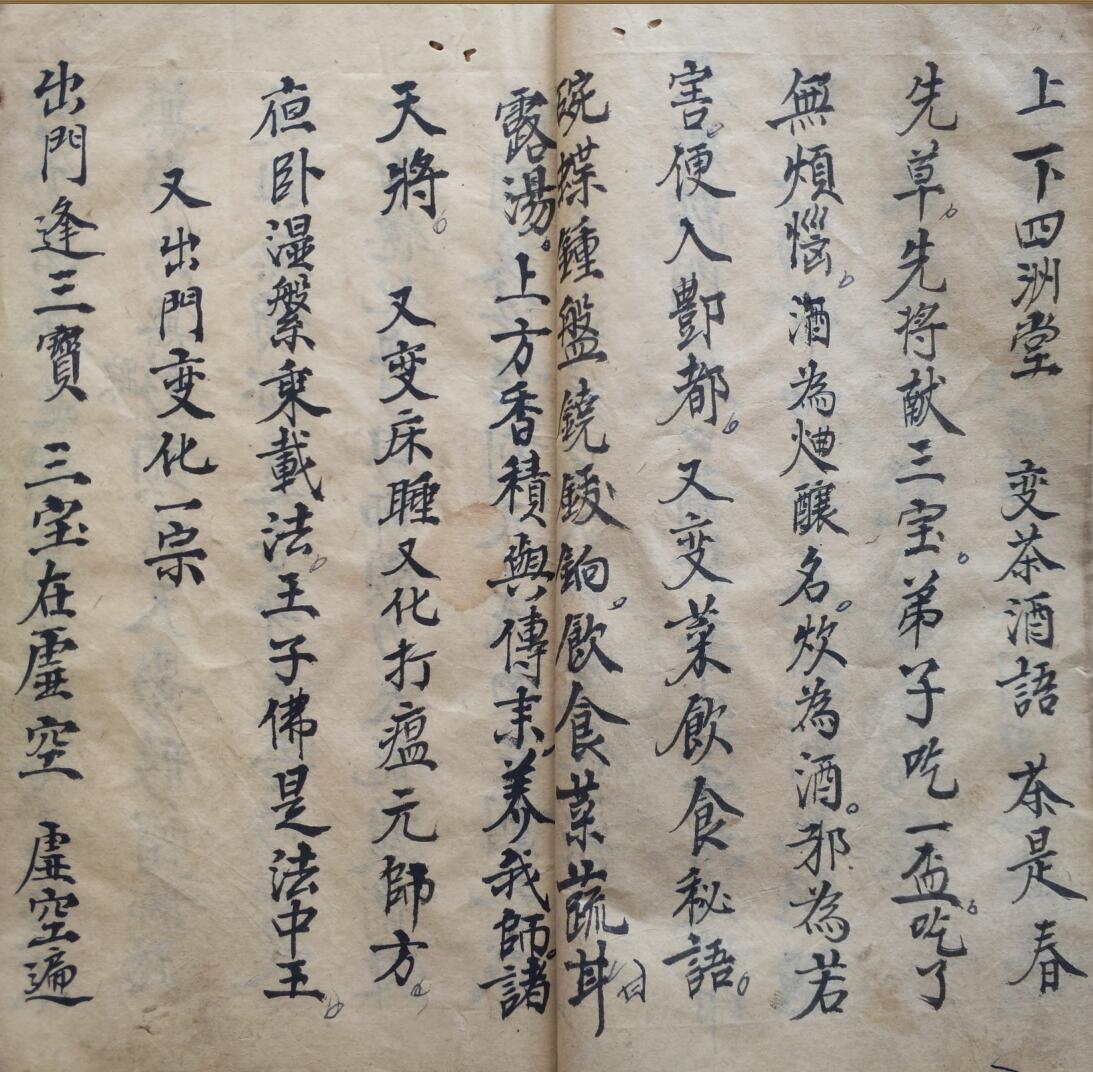 上下四洲堂 变茶酒語 茶是春
先草。先将献三宝。弟子吃一盃。吃了
無煩惱。酒為煻釀名。炊為酒。邪為若
害。便入酆都。又变菜飲食秘語。
碗楪鍾盤鐃鈸銄。飲食菜蔬甘
露湯。上方香積與傳来养我師。諸
天將。又变床睡又化打瘟元師方。
夜卧湿盤乘載法。王子佛是法中王。
又出門变化一宗
出門逢三寶 三宝在虛空 虛空遍